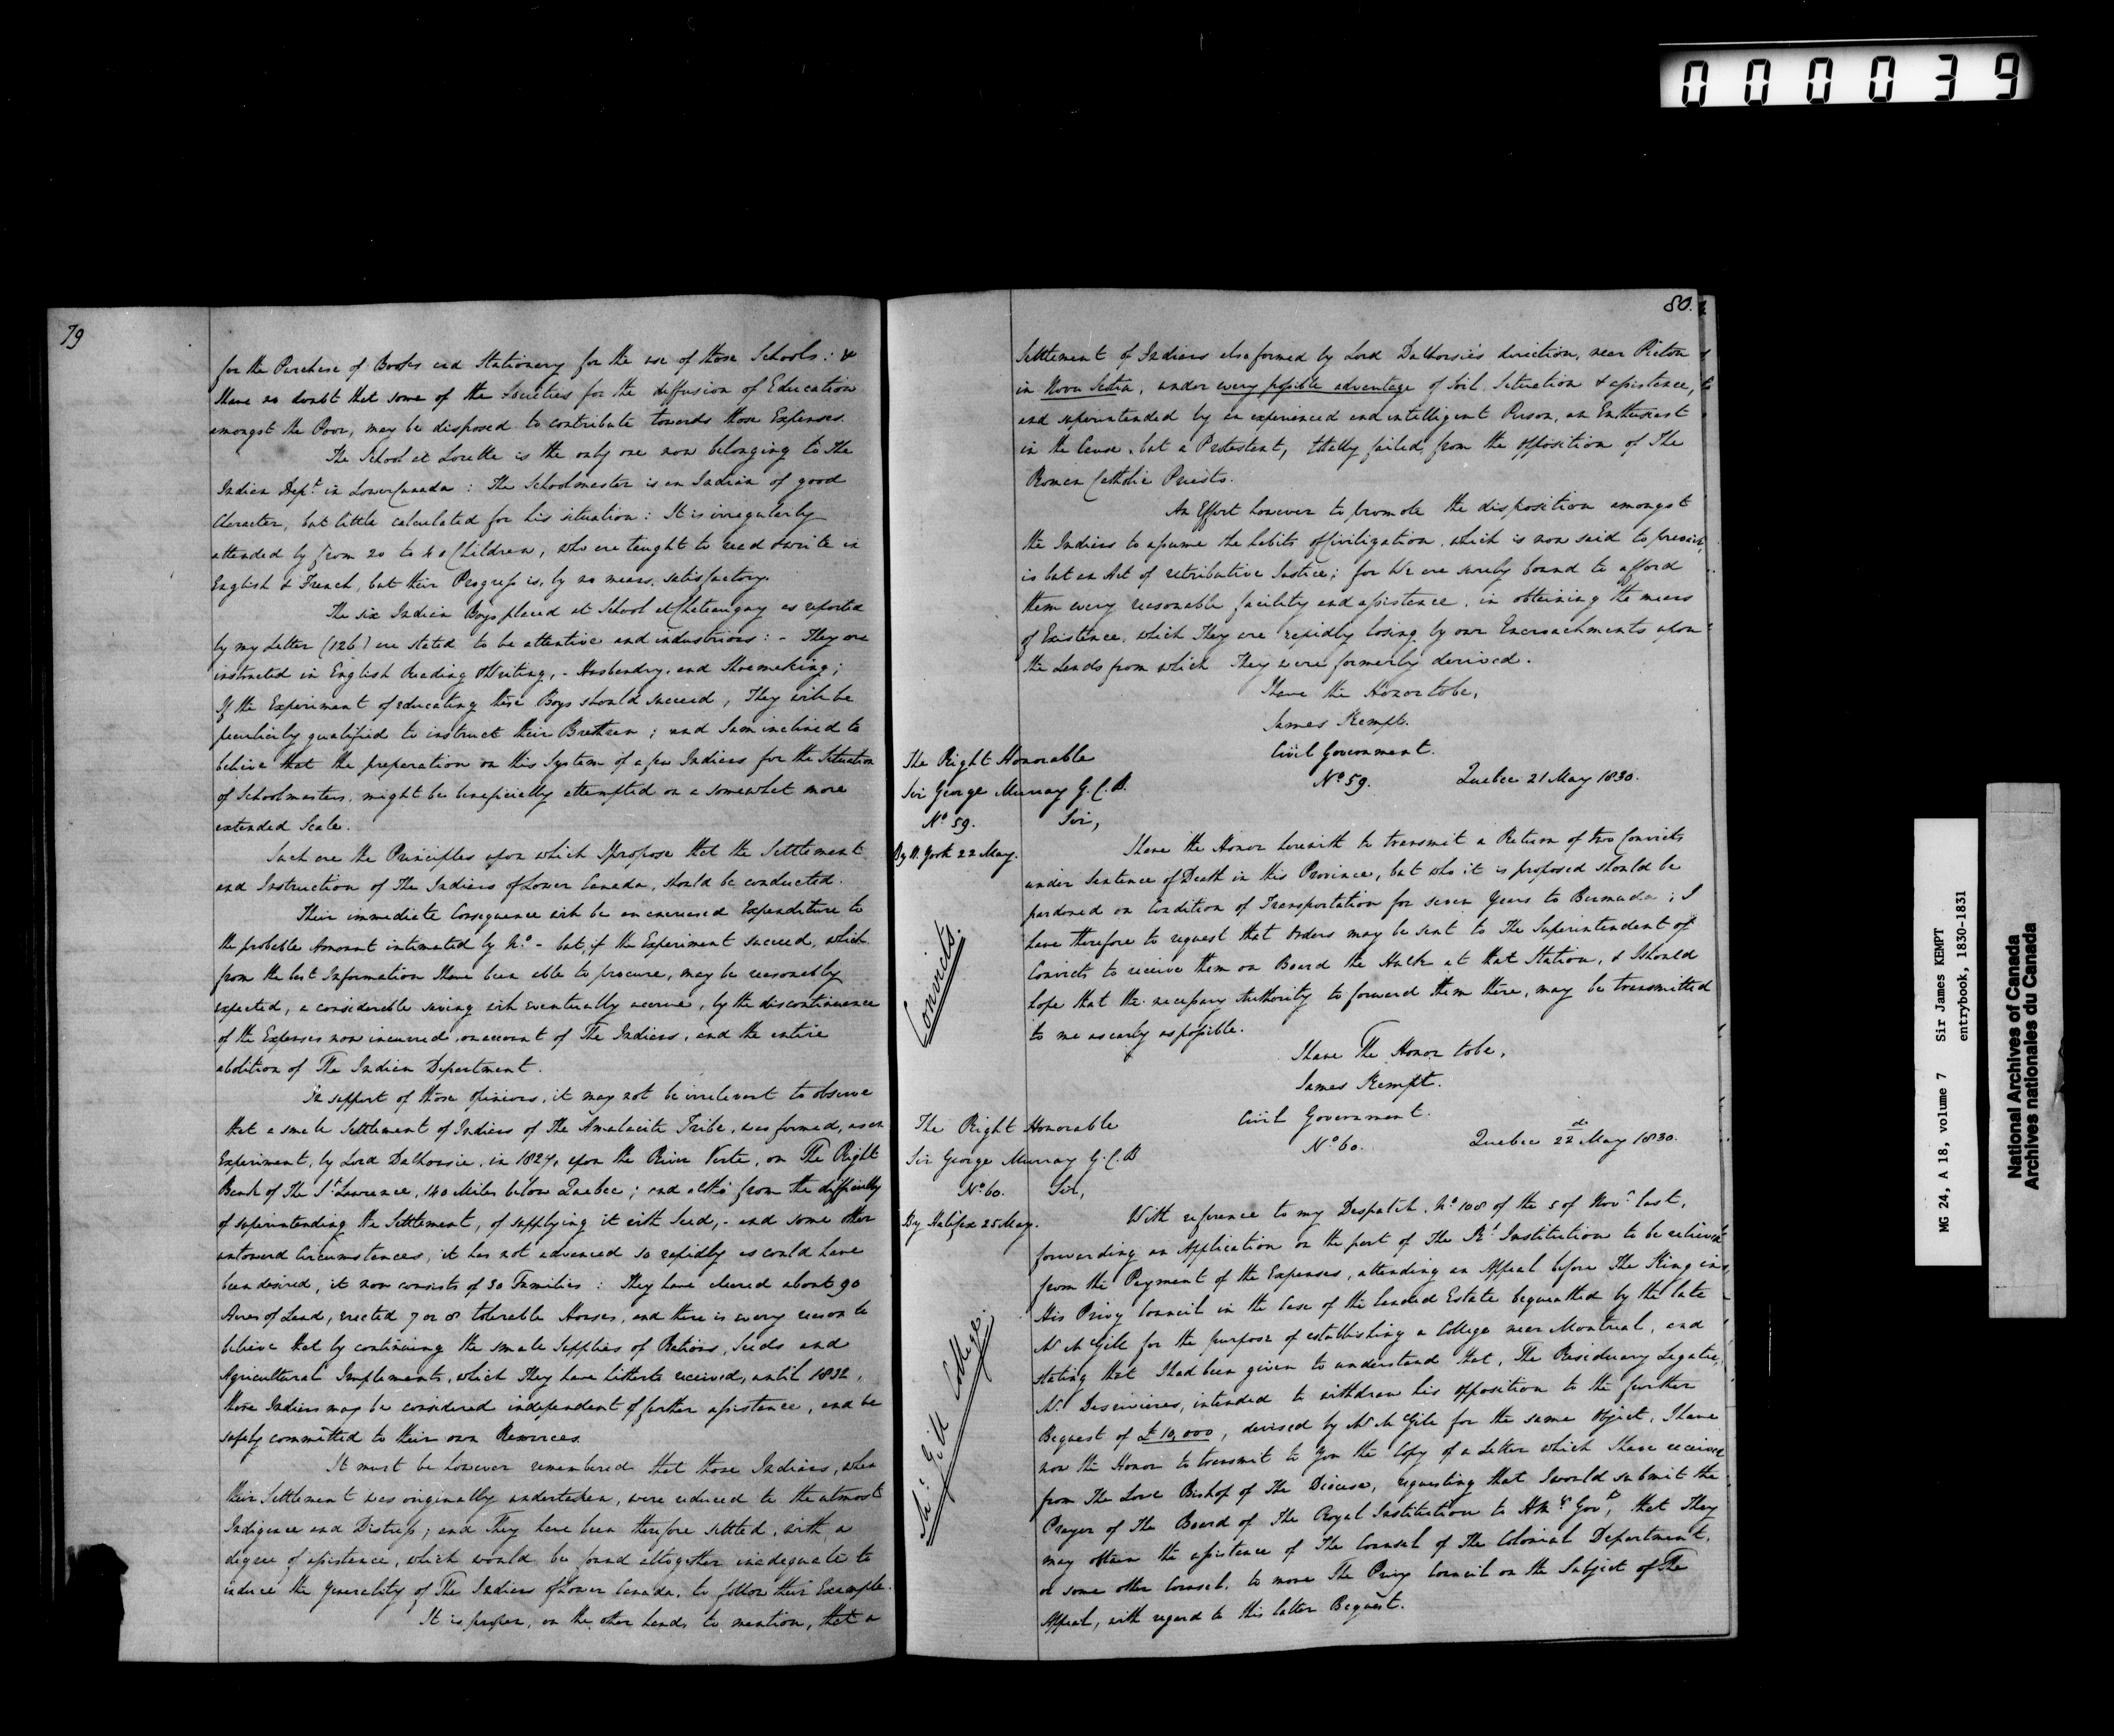 000039
79
for the Purchase of Books and Stationery for the use of those Schools: &
I have no doubt that some of the Societies for the diffusion of Education
amongst the Poor, may be disposed to contribute towards those Expenses.
The School at Lorette is the only one now belonging to The
Indian Dept. in Lower Canada: The Schoolmaster is an Indian of good
Character, but little calculated for his situation: It is irregularly
attended by from 20 to 40 Children, who are taught to read & write in
English & French, but their Progress is, by no means, satisfactory.
The six Indian Boys placed at School at Chateauguay as reported
by my Letter (126) are stated to be attentive and industrious: - They are
instructed in English Reading & Writing, - Husbandry, and Shoemaking;
If the Experiment of educating these Boys should succeed, They will be
peculiarly qualified to instruct their Brethren; and I am inclined to
believe that the preparation on this System of a few Indians for the Situation
of Schoolmasters, might be beneficially attempted on a somewhat more
extended Scale.
Such are the Principles upon which I propose that the Settlement
and Instruction of The Indians of Lower Canada, should be conducted.
Their immediate Consequence will be an encreased Expenditure to
the probable Amount intimated by No. - but, if the Experiment succeed, which
from the best Information I have been able to procure, may be reasonably
expected, a considerable saving will eventually accrue, by the discontinuance
of the Expenses now incurred, on account of The Indians, and the entire
abolition of The Indian Department.
In support of those opinions, it may not be irrelevant to observe
that a small Settlement of Indians of The Amalacite Tribe, was formed, as an
Experiment, by Lord Dalhousie, in 1827, upon the River Verte, on The Right
Bank of The St. Lawrence, 140 Miles below Quebec; and altho' from the difficulty
of superintending the Settlement, of supplying it with Seed, - and some other
untoward Circumstances, it has not advanced so rapidly as could have
been desired, it now consists of 30 Families: They have cleared about 90
Acres of Land, erected 7 or 8 tolerable Houses, and there is every reason to
believe that by continuing the small supplies of Rations, Seeds and
Agricultural Implements, which They have hitherto received, until 1832,
those Indians may be considered independent of further assistance, and be
safely committed to their own Resources.
It must be however remembered that those Indians, when
their Settlement was originally undertaken, were reduced to the utmost
Indigence and Distress; and They have been therefore settled, with a
degree of assistance, which would be found altogether inadequate to
induce the generality of The Indians of Lower Canada, to follow their Example.
It is proper, on the other hand, to mention, that a
80.
Settlement of Indians also formed by Lord Dalhousie's direction, near Pictou
in Nova Scotia, under every possible advantage of Soil, Situation & assistance,
and superintended by an experienced and intelligent Person, an Enthusiast
in the Cause, but a Protestant, totally failed, from the opposition of The
Roman Catholic Priests.
An Effort however to promote the disposition amongst
the Indians to assume the habits of Civilization, which is now said to prevail,
is but an Act of retributive Justice; for We are surely bound to afford
them every reasonable facility and assistance, in obtaining the means
of Existence, which They are rapidly losing by our Encroachments upon
the Lands from which They were formerly derived.
I have the Honor to be,
James Kempt.
The Right Honorable
Civil Government.
Sir George Murray G.C.B.
No. 59. Quebec 21 May 1830.
No. 59. Sir,
By N. York 22 May.
I have the Honor herewith to transmit a Return of two Convicts
under Sentence of Death in this Province, but who it is proposed should be
pardoned on Condition of Transportation for seven Years to Bermuda; I
have therefore to request that Orders may be sent to The Superintendent of
Convicts to receive them on Board the Hulk at that Station, & I should
hope that the necessary Authority to forward them there, may be transmitted
to me as early as possible.
Convicts.
I have The Honor to be,
James Kempt.
The Right Honorable
Civil Government.
Sir George Murray G.C.B
No. 60. Quebec 22d May 1830.
No. 60. Sir,
By Halifax 25 May.
With reference to my Despatch No. 108 of the 5 of Novr. last,
forwarding an Application on the part of The Rl. Institution to be relieved
from the Payment of the Expenses, attending an Appeal before The King in
His Privy Council in the Case of the landed Estate bequeathed by the late
Mr McGill for the purpose of establishing a College near Montreal, and
stating that I had been given to understand that, The Residuary Legatee,
Mr. Desrivieres, intended to withdraw his opposition to the further
Bequest of £10,000, devised by Mr McGill for the same Object, I have
now the Honor to transmit to You the Copy of a Letter which I have received
from The Lord Bishop of The Diocese, requesting that I would submit the
Prayer of The Board of The Royal Institution to H.M.'s Govt., that They
may obtain the assistance of The Counsel of The Colonial Department,
or some other Counsel, to move The Privy Council on the Subject of The
Appeal, with regard to this latter Bequest.
McGill College.
MG 24, A 18, volume 7 Sir James KEMPT
entrybook, 1830-1831
National Archives of Canada
Archives nationales du Canada